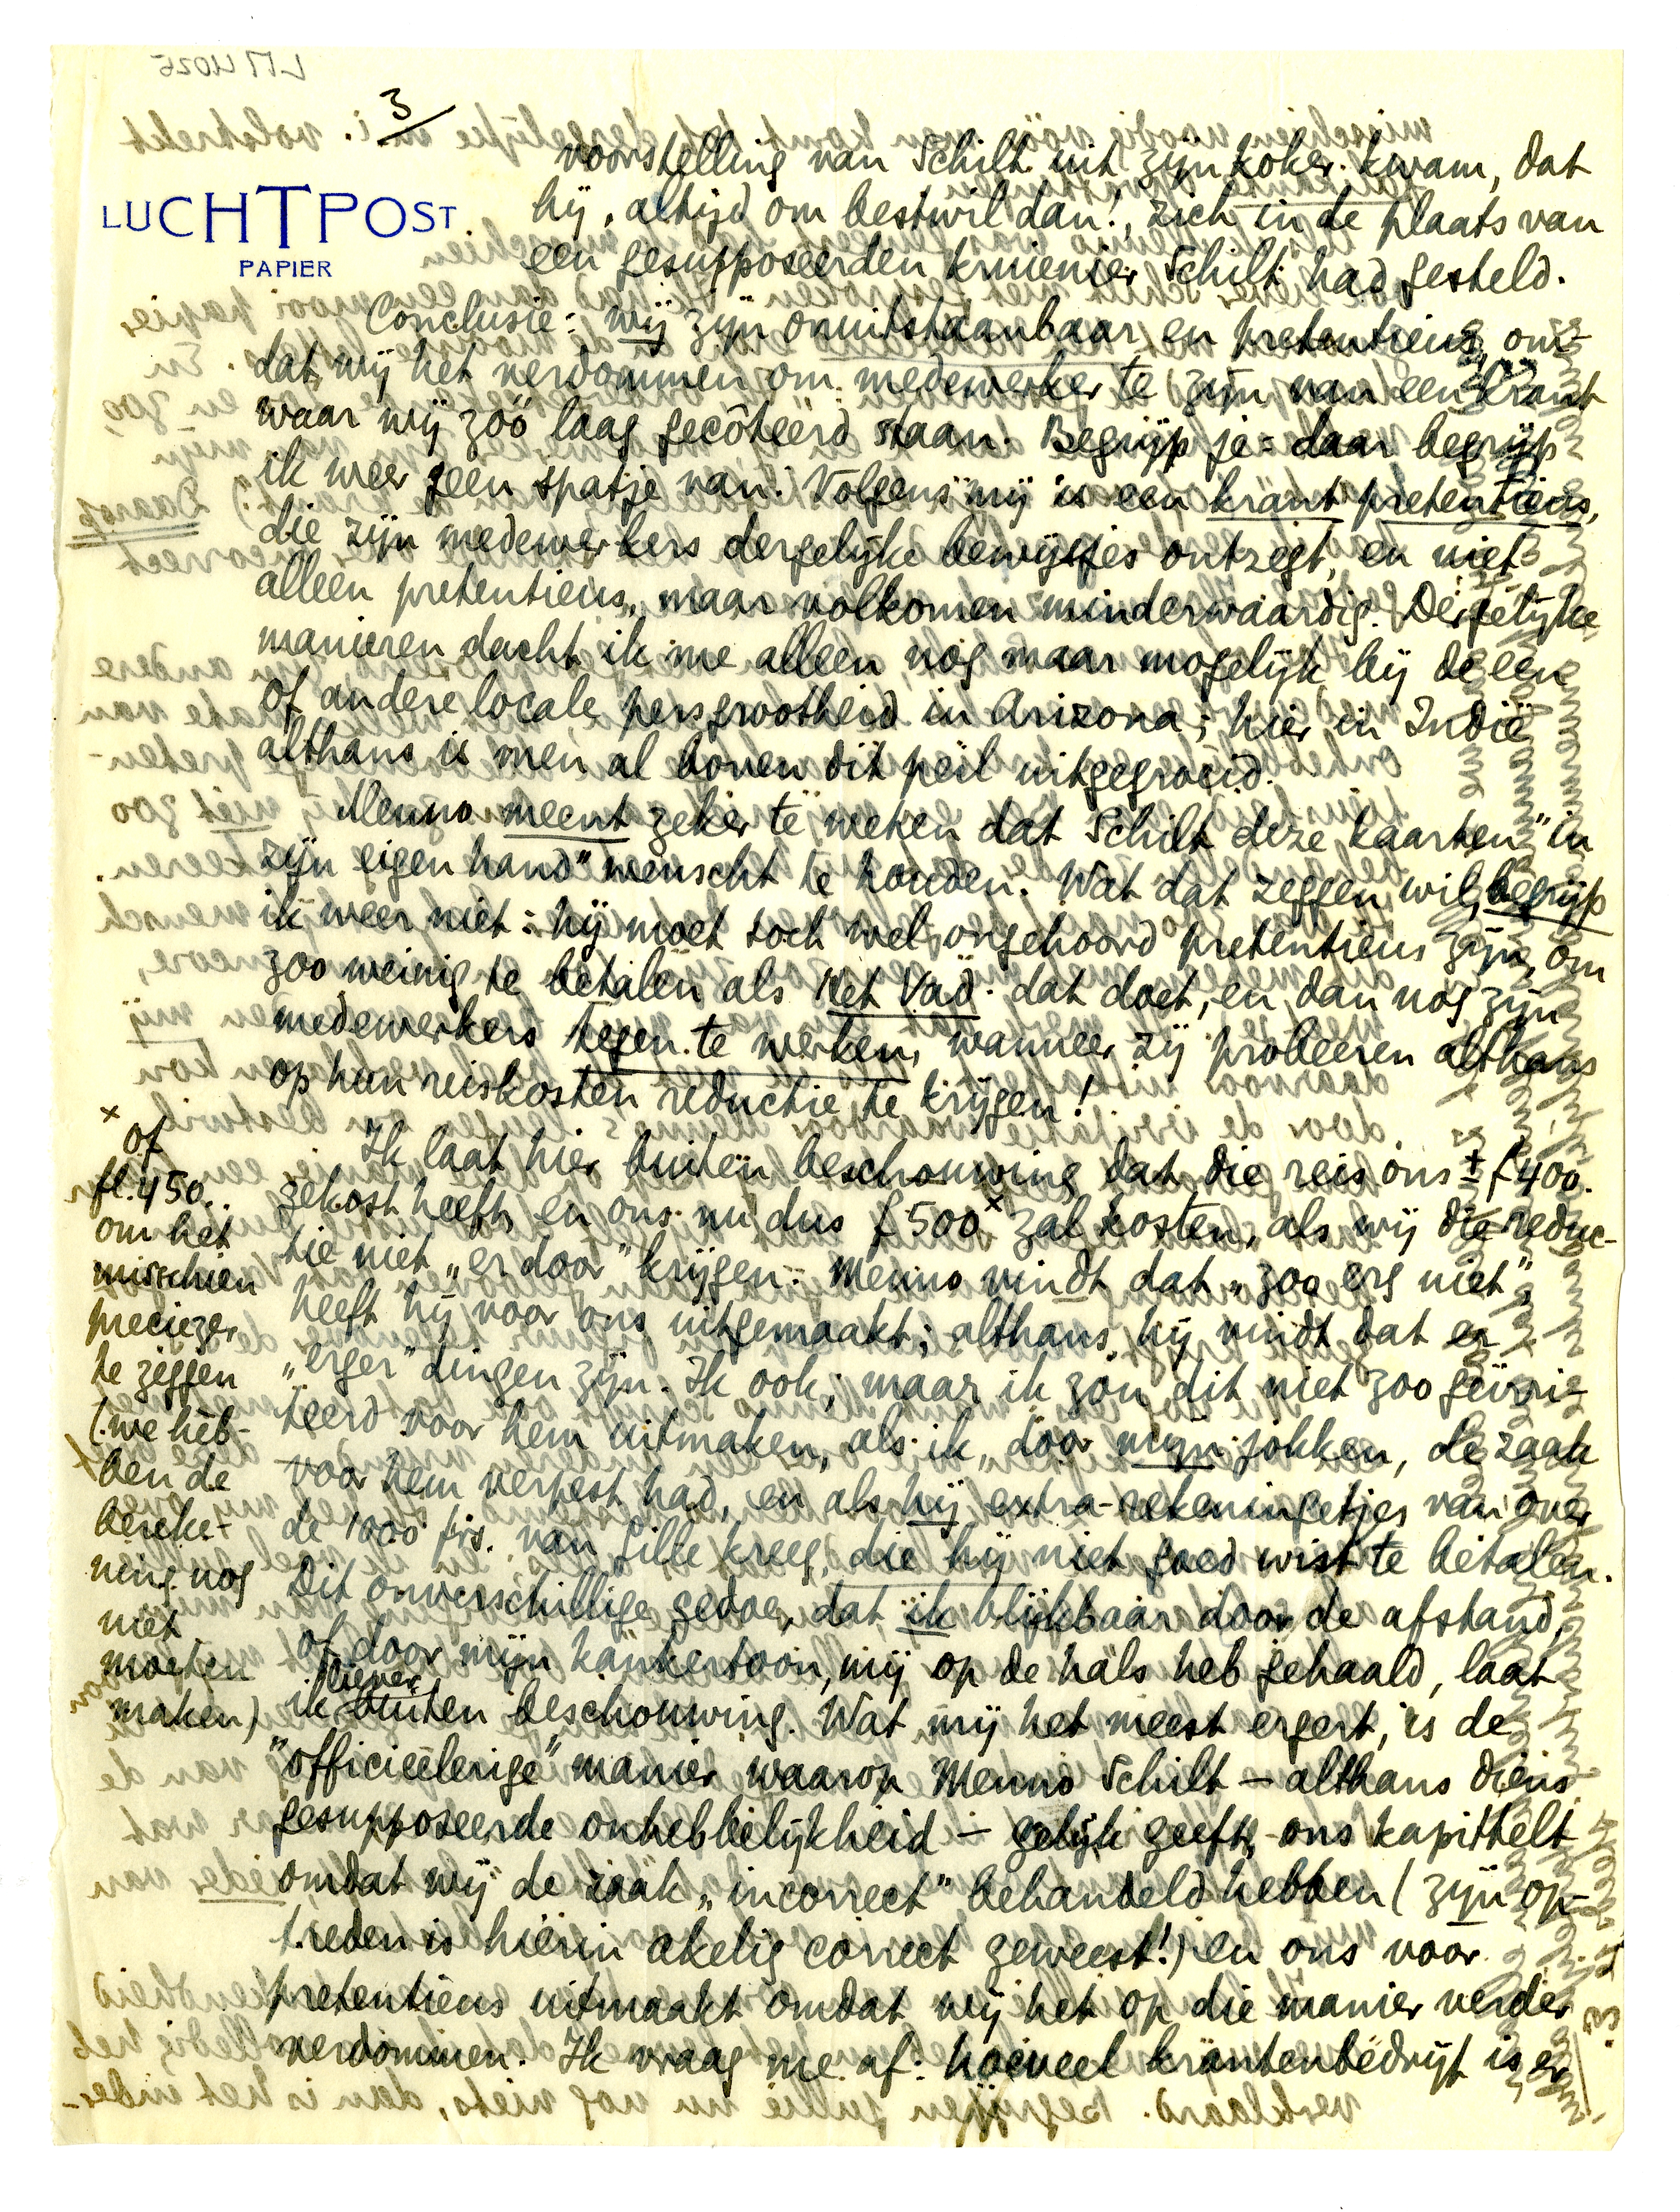 3
LUCHTPOST
PAPIER
voorstelling van Schilt uit zijn koker kwam, dat
hij, altijd om bestwil dan!, zich in de plaats van
een gesupposeerden kruienier Schilt had gesteld.
Conclusie: wij zijn onuitstaanbaar en pretentieus, om-
dat wij het verdommen om medewerker te zijn van een krant
waar wij zóó laag gecôteerd staan. Begrijp je: daar begrijp
ik weer geen spatje van. Volgens mij is een krant pretentieus,
die zijn medewerkers dergelijke bewijsjes ontzegt, en niet
alleen pretentieus, maar volkomen minderwaardig. Dergelijke
manieren dacht ik me alleen nog maar mogelijk bij de een
of andere locale persgrootheid in Arizona; hier in Indië
althans is men al boven dit peil uitgegroeid.
Menno meent zeker te weten dat Schilt deze kaarten "in
zijn eigen hand" wenscht te houden. Wat dat zeggen wil, begrijp
ik weer niet: hij moet toch wel ongehoord pretentieus zijn, om
zoo weinig te betalen als Het Vad. dat doet, en dan nog zijn
medewerkers tegen te werken, wanneer zij probeeren althans
op hun reiskosten reductie te krijgen!
Ik laat hier buiten beschouwing dat die reis ons ± f 400.
gekost heeft, en ons nu dus f 500 x zal kosten, als wij die reduc-
tie niet „er door" krijgen. Menno vindt dat „zoo erg niet",
heeft hij voor ons uitgemaakt; althans, hij vindt dat er
„erger" dingen zijn. Ik ook; maar ik zou dit niet zoo geïrri-
teerd voor hem uitmaken, als ik, door mijn jokken, de zaak
voor hem verpest had, en als hij extra-rekeningetjes van over
de 1000 frs. van Gille kreeg, die hij niet goed wist te betalen.
Dit onverschillige gedoe, dat ik blijkbaar door de afstand,
of door mijn kankertoon, mij op de hals heb gehaald, laat
ik liever buiten beschouwing. Wat mij het meest ergert, is de
"officieelerige" manier waarop Menno Schilt – althans diens
gesupposeerde onhebbelijkheid – gelijk geeft, ons kapittelt
omdat wij de zaak „incorrect" behandeld hebben (zijn op-
treden is hierin akelig correct geweest!) en ons voor
pretentieus uitmaakt omdat wij het op die manier verder
verdommen. Ik vraag me af: hoeveel krantenbedrijf is er
x
of
fl. 450..
om het
misschien
preciezer
te zeggen
(we heb-
ben de
bereke-
ning nog
niet
moeten
maken)